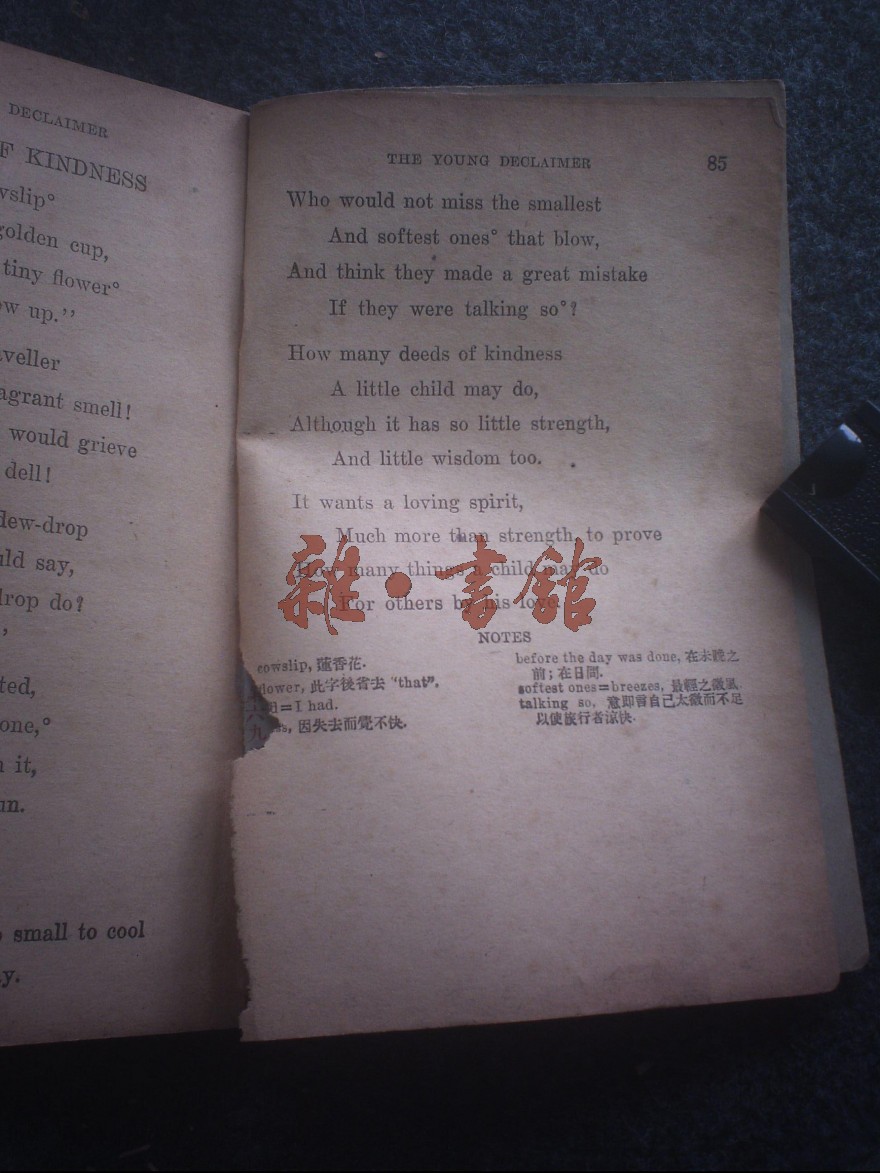 DECLAIMER
F KINDNESS
wslip°
golden cup,
tiny flower°
ow up.”
veller
agrant smell!
would grieve
dell!
dew-drop
uld say,
drop do?
’
ted,
one,°
n it,
un.
small to cool
y.
THE YOUNG DECLAIMER 85
Who would not miss the smallest
And softest ones° that blow,
And think they made a great mistake
If they were talking so°?
How many deeds of kindness
A little child may do,
Although it has so little strength,
And little wisdom too.
It wants a loving spirit,
Much more than strength, to prove
How many things a child may do
For others by his love.
雜·書館
NOTES
cowslip, 蓮香花.
flower, 此字後省去 “that”.
=I had.
ss, 因失去而覺不快.
六
九
before the day was done, 在未晚之
前; 在日間.
softest ones=breezes, 最輕之微風
talking so, 意即言自己太微而不足
以使旅行者涼快.